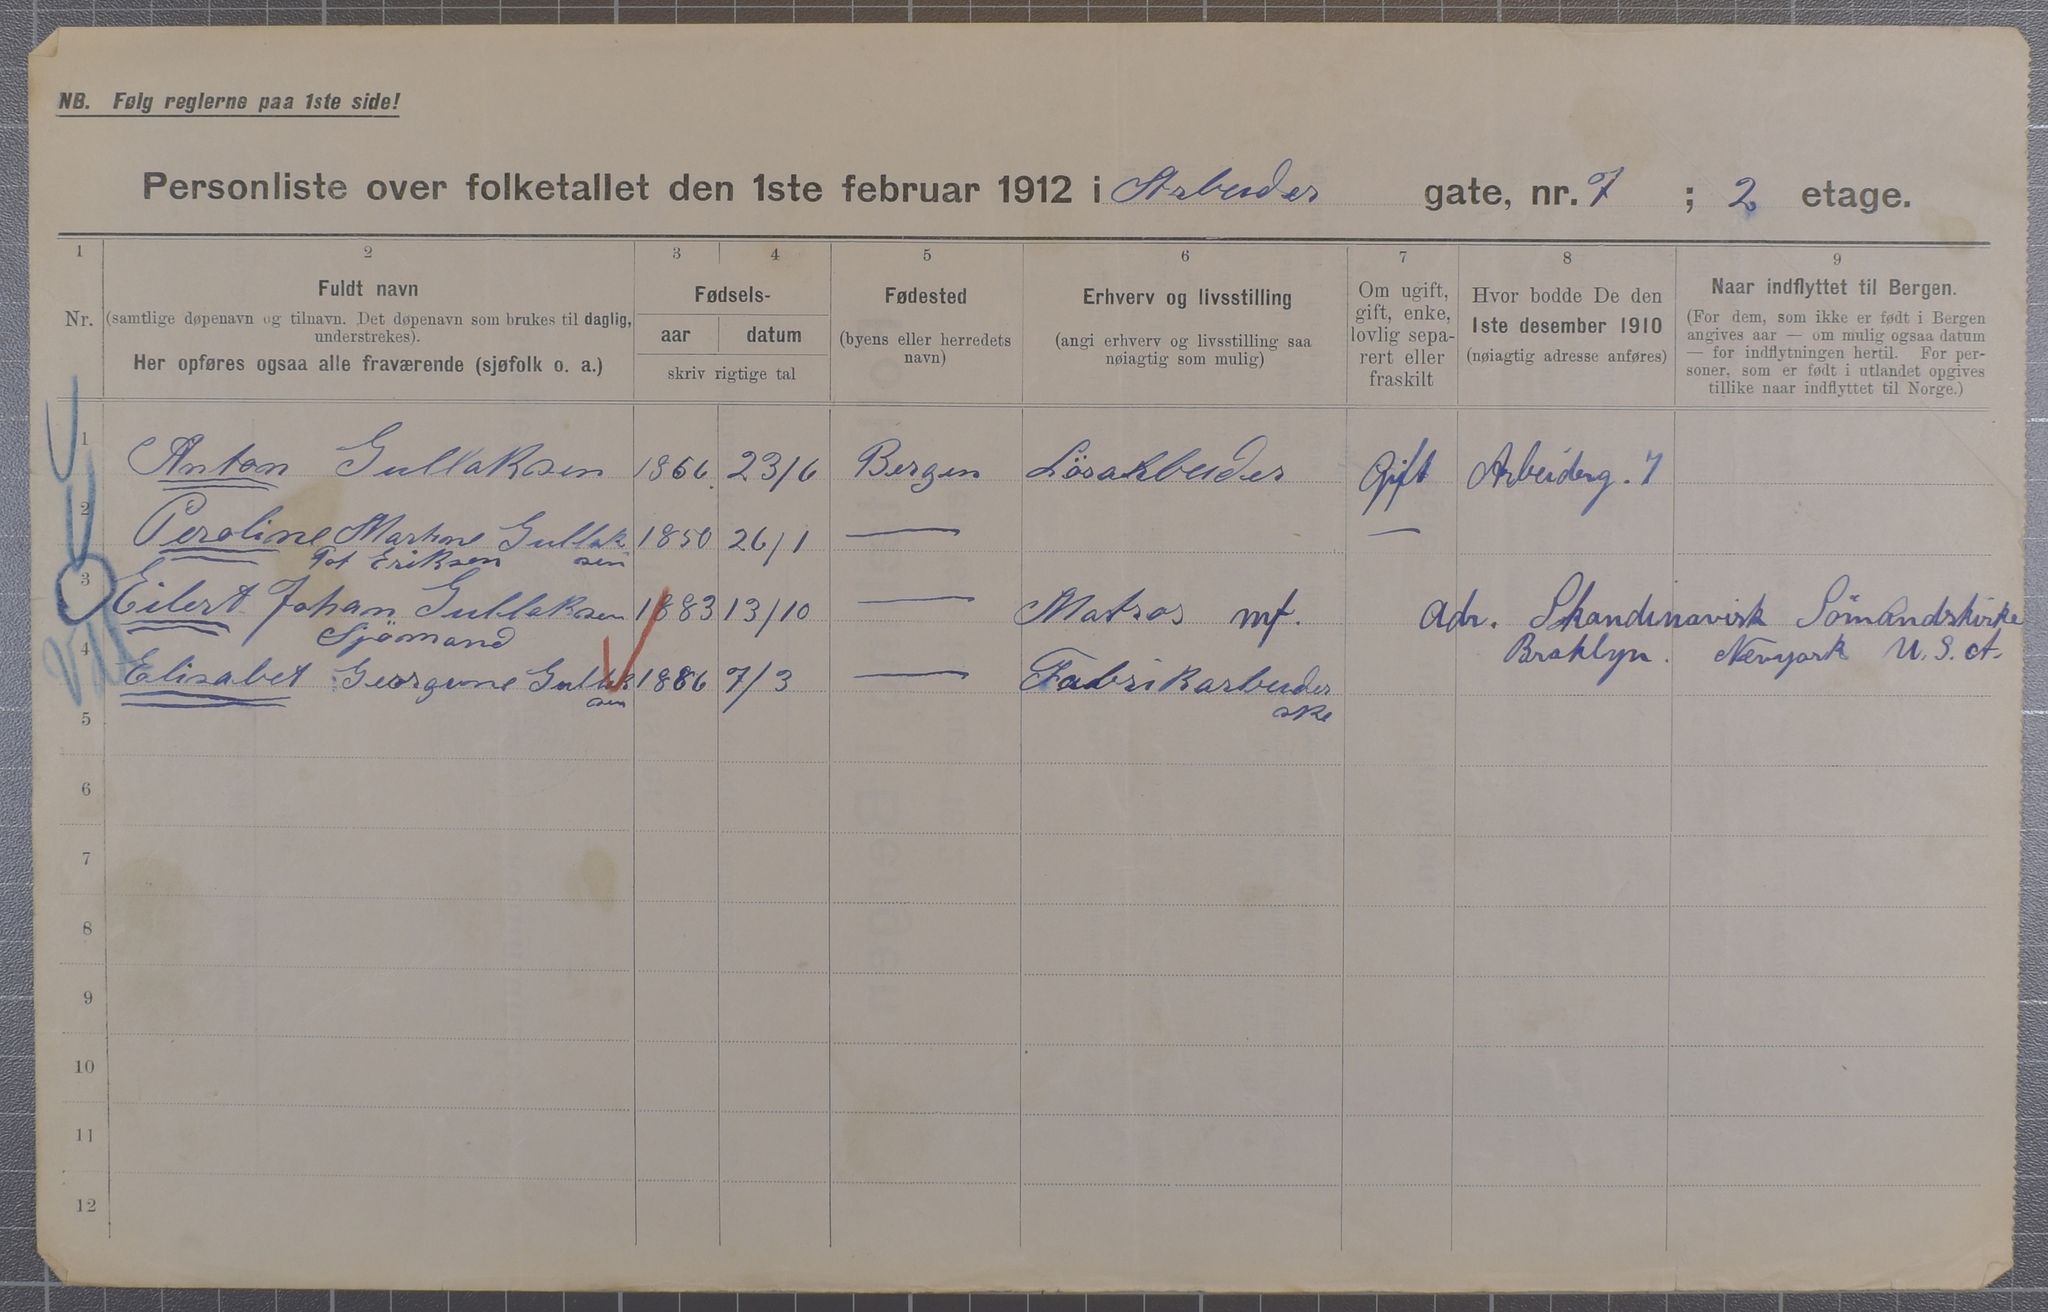 NB. Følg reglerne paa 1ste side!
Personliste over folketallet den 1ste februar 1912 i Arbeider gate, nr. 7 ; 2 etage.
1 2 3 4 5 6 7 8 9
Nr.
Fuldt navn
(samtlige døpenavn og tilnavn. Det døpenavn som brukes til daglig,
understrekes).
Her opføres ogsaa alle fraværende (sjøfolk o. a.)
Fødsels-
aar datum
skriv rigtige tal
Fødested
(byens eller herredets
navn)
Erhverv og livsstilling
(angi erhverv og livsstilling saa
nøiagtig som mulig)
Om ugift,
gift, enke,
lovlig sepa-
rert eller
fraskilt
Hvor bodde De den
1ste desember 1910
(nøiagtig adresse anføres)
Naar indflyttet til Bergen.
(For dem, som ikke er født i Bergen
angives aar — om mulig ogsaa datum
— for indflytningen hertil. For per-
soner, som er født i utlandet opgives
tillike naar indflyttet til Norge.)
1 Anton Gullaksen 1856 23/6 Bergen Lösarbeider Gift Arbeiderg. 7
2 Peroline Martine Gullak 1850 26/1 — —
Föt Eriksen sen
3 Eilert Johan Gullaksen 1883 13/10 — Matros mf. adr. Skandinavisk Sömandskirke
Sjömand Broklyn. Nevyork U. S. A.
4 Elisabet Georgine Gullak 1886 7/3 — Fabrikarbeider
sen ske
5
6
7
8
9
10
11
12